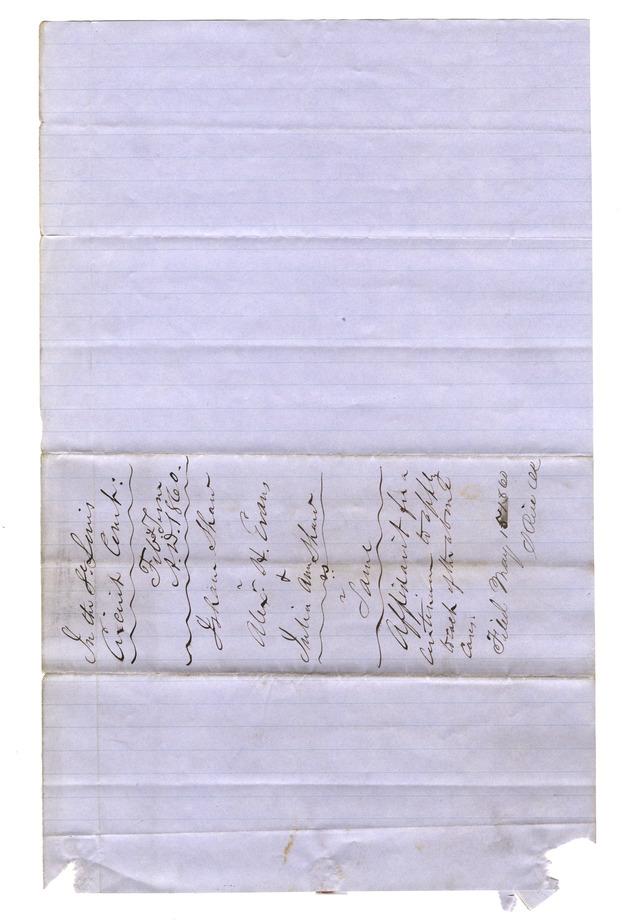 In the St. Louis
Circuit Court:
Feb Term
A.D. 1860.
Isham Shaw
v
Alexr. H. Evans
&
Julia Ann Shaw
vs
v
Same
Affidavit for a
continuance to apply
to each of the above
Cases.
Filed May 1860
S Rice Clk